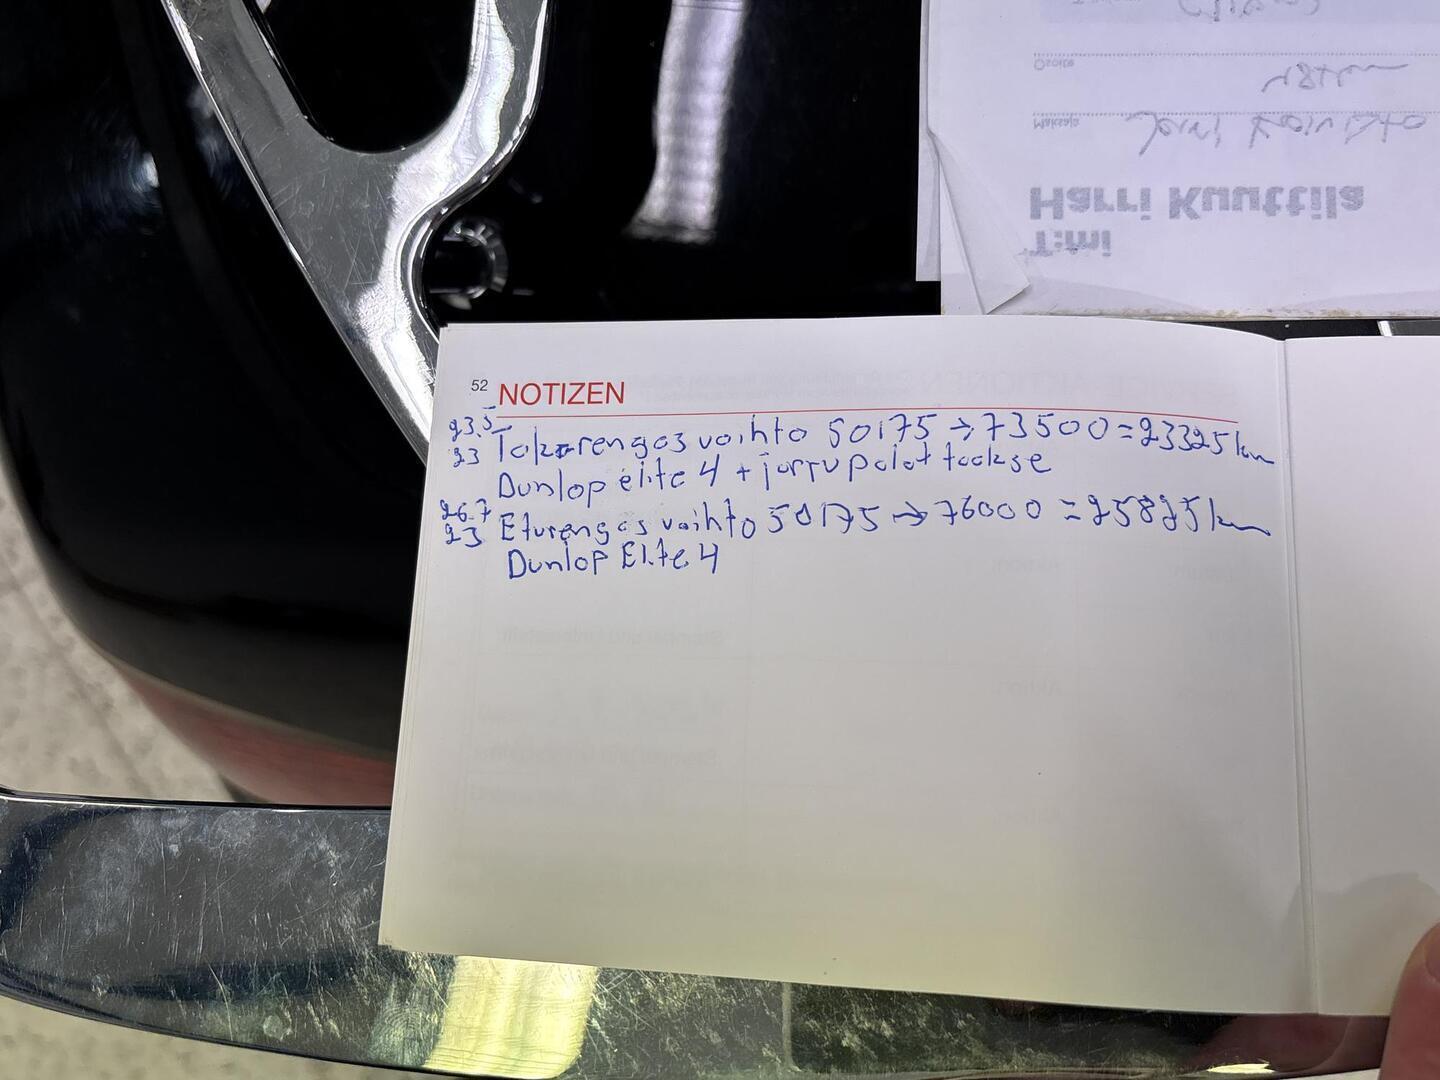 Osoite
Maksaja
Harri Kuuttila
T:mi
52 NOTIZEN
23.5 Takarengas vaihto 50175 → 73500 = 23325 km
23 Dunlop elite 4 + jarrupalat taakse
26.7 Eturengas vaihto 50175 → 76000 = 25825 km
23 Dunlop Elite 4